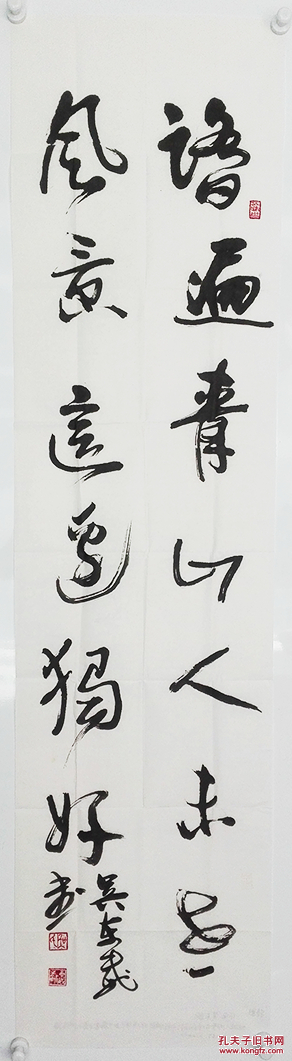 踏遍青山人未老
风景这边独好
吴东武书
孔夫子旧书网
www.kongfz.com